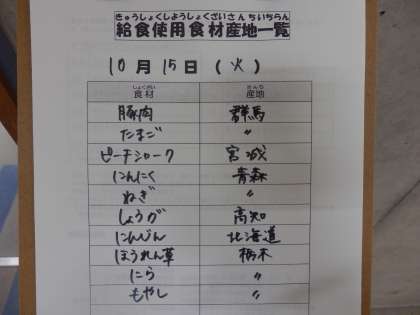 きゅうしょくしようしょくざいさんちいちらん
給食使用食材産地一覧
10月15日(火)
しょくざい さんち
食材 産地
豚肉 群馬
たまご 〃
ピーチシャーク 宮城
にんにく 青森
ねぎ 〃
しょうが 高知
にんじん 北海道
ほうれん草 栃木
にら 〃
もやし 〃